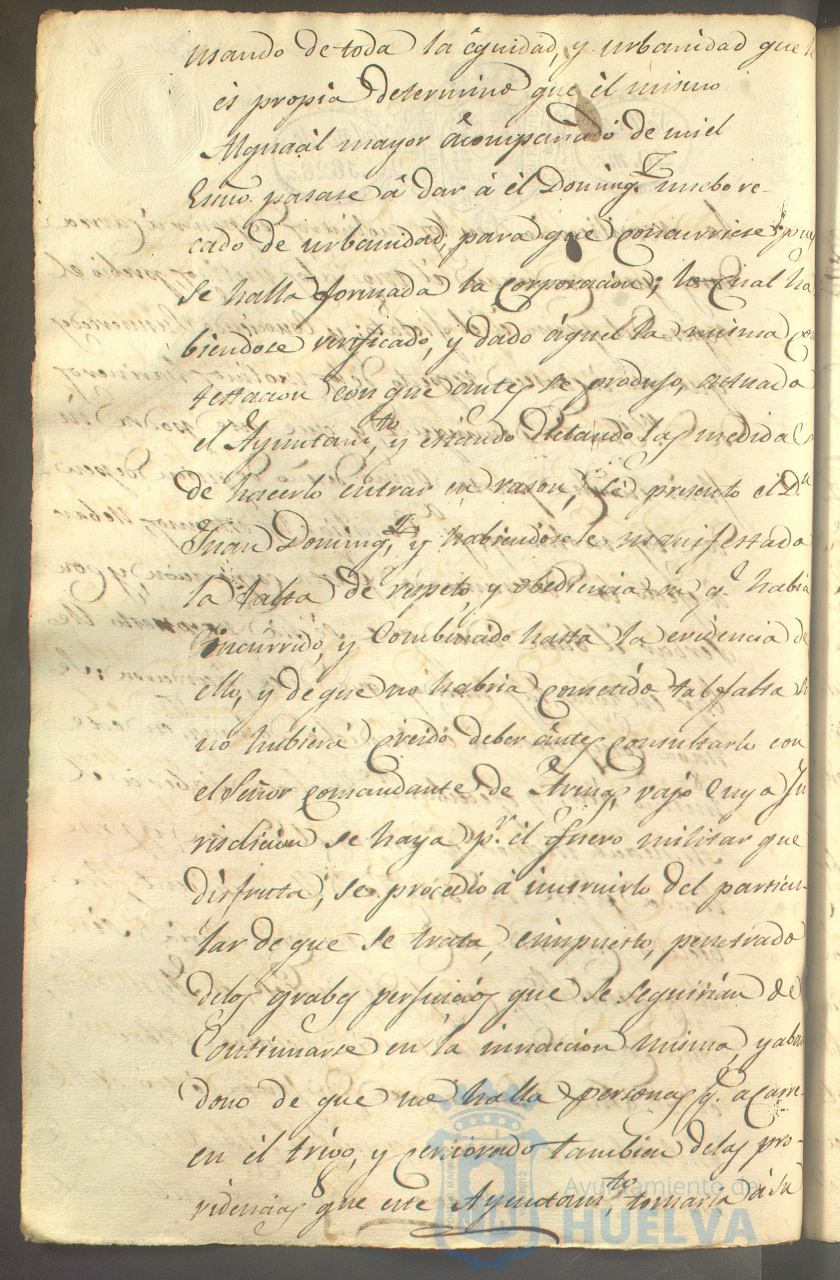 usando de toda la eguidad, y urbanidad que le
es propia determinó que el mismo
Alguacil mayor acompañado de mi el
Esno. pasase á dar á el Domingz nuebo re-
cado de urbanidad, para que concurriese, pues
se halla formada la corporacion; lo cual ha
biendose verificado, y dado aquel la misma con
testacion con que antes se produjo, actuado
el Ayuntamto, y estando dictando las medidas
de hacerlo entrar en rason, se presento el Dn
Juan Domingz, y habiendosele manifestado
la falta de respeto, y obediencia en q.e había
incurrido, y combinado hasta la evidencia de
ello, y de que no habria cometido tal falta si
no hubiera creido deber antes consultarlo con
el Señor comandante de Armas, vajo cuya Ju
risdicion se haya p.r el fuero militar que
disfruta, se procedió á instruirlo del particu-
lar de que se trata, é impuesto, penetrado
delos grabes perjuicios que se seguirian de
Continuarse en la innaccion misma, y aban
dono de que no halla personas q.e acarre-
en el trigo, y cerciorado tambien delas pro-
videncias que este Ayuntamto, tomaría á su
Ayuntamiento de
HUELVA